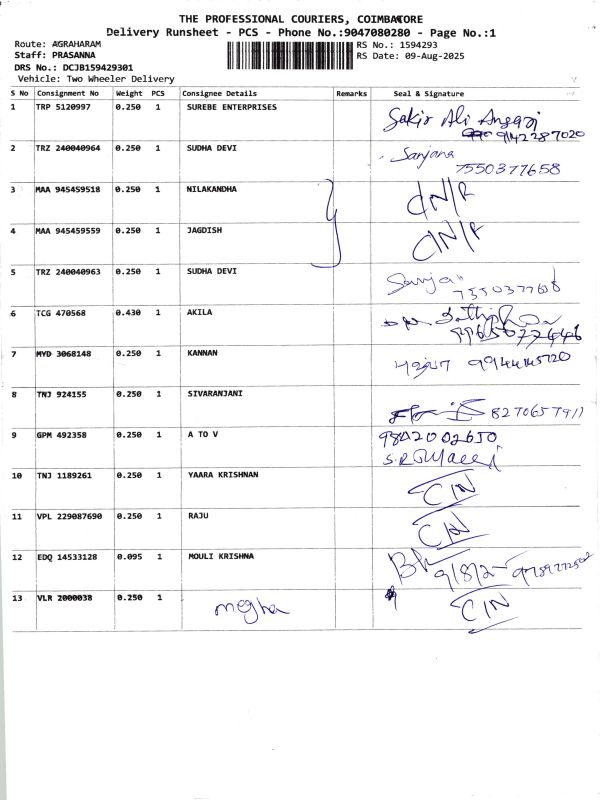 THE PROFESSIONAL COURIERS, COIMBATORE
Delivery Runsheet - PCS - Phone No.:9047080280 - Page No.:1
Route: AGRAHARAM
Staff: PRASANNA
DRS No.: DCJB159429301
Vehicle: Two Wheeler Delivery
RS No.: 1594293
RS Date: 09-Aug-2025
S No Consignment No Weight PCS Consignee Details Remarks Seal & Signature
1 TRP 5120997 0.250 1 SUREBE ENTERPRISES Sakir Ali Ansari
9142287020
2 TRZ 240040964 0.250 1 SUDHA DEVI Sanjana
7550377658
3 MAA 945459518 0.250 1 NILAKANDHA
4 MAA 945459559 0.250 1 JAGDISH
5 TRZ 240040963 0.250 1 SUDHA DEVI
6 TCG 470568 0.430 1 AKILA
7 MYD 3068148 0.250 1 KANNAN
8 TNJ 924155 0.250 1 SIVARANJANI 8270657911
9 GPM 492358 0.250 1 A TO V 9842002650
10 TNJ 1189261 0.250 1 YAARA KRISHNAN C/N
11 VPL 229087690 0.250 1 RAJU C/N
12 EDQ 14533128 0.095 1 MOULI KRISHNA
13 VLR 2000038 0.250 1 megha C/N